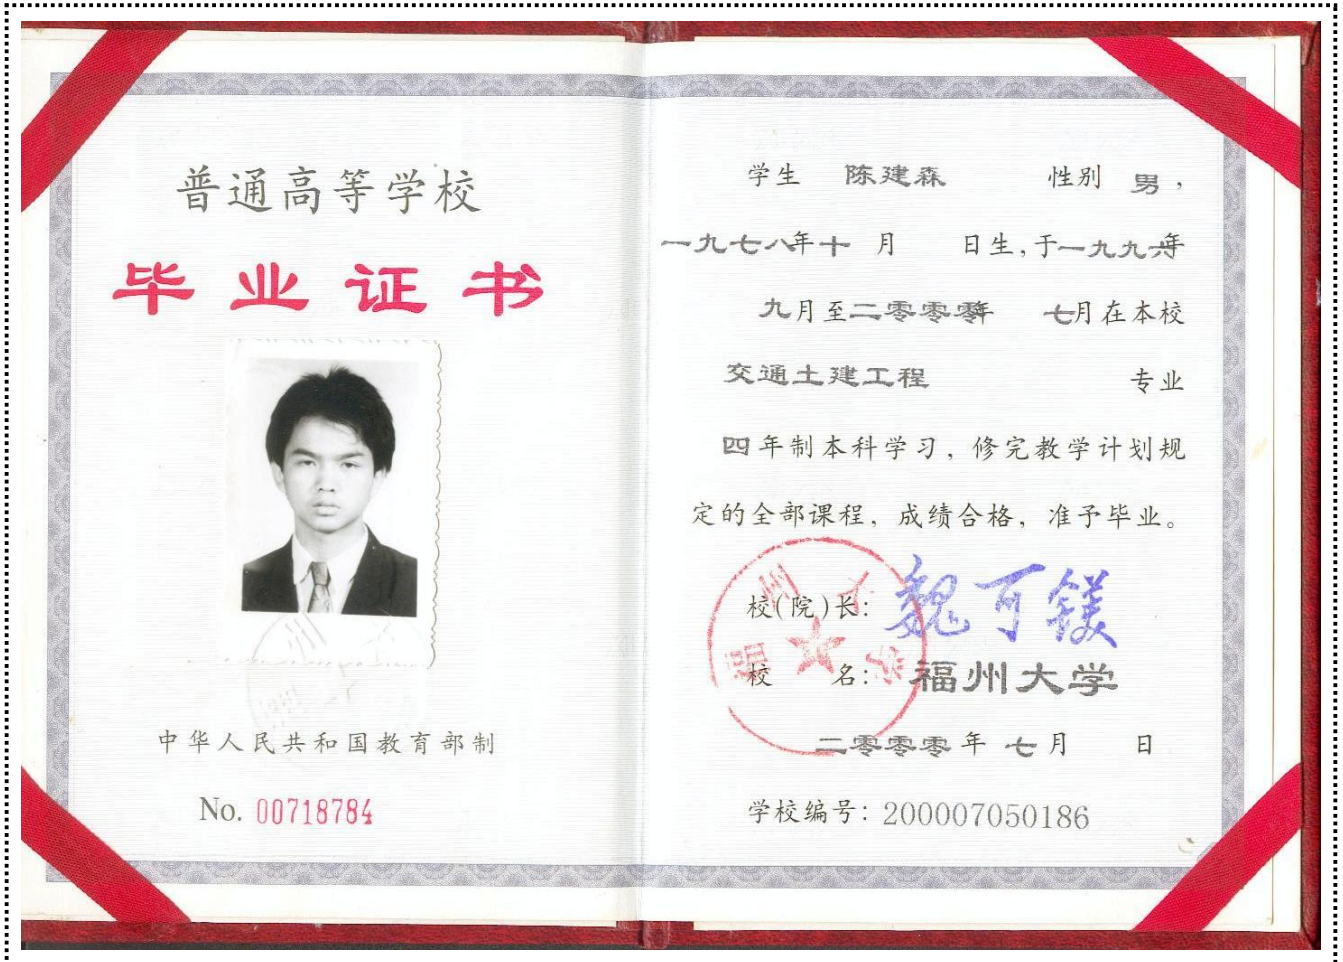 普通高等学校
毕业证书
中华人民共和国教育部制
No. 00718784
学生 陈建森 性别 男,
一九七八年十 月 日生,于一九九六年
九月至二零零零年 七月在本校
交通土建工程 专业
四年制本科学习, 修完教学计划规
定的全部课程, 成绩合格, 准予毕业。
校(院)长: 魏可镁
校 名: 福州大学
二零零零 年 七 月 日
学校编号: 200007050186
福州大学